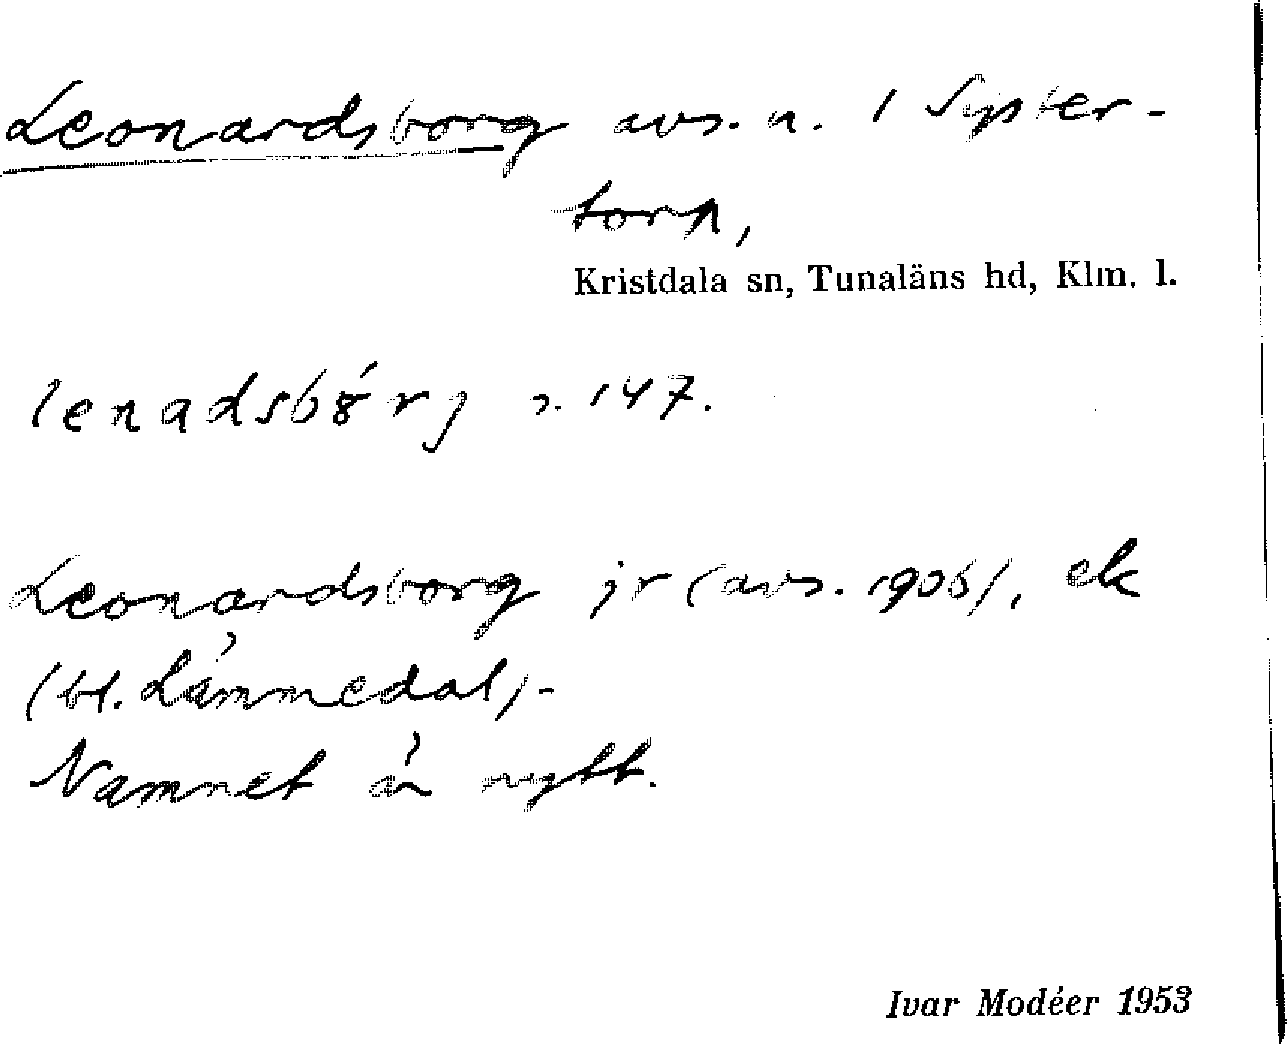 Leonardsborg avs. n. 1 Sipter-
torp,
Kristdala sn, Tunaläns hd, Klm. l.
147.
Leonardsborg jr (avs. 1906), ek
(bl. Lämmedal).
Namnet är nytt.
Ivar Modéer 1953